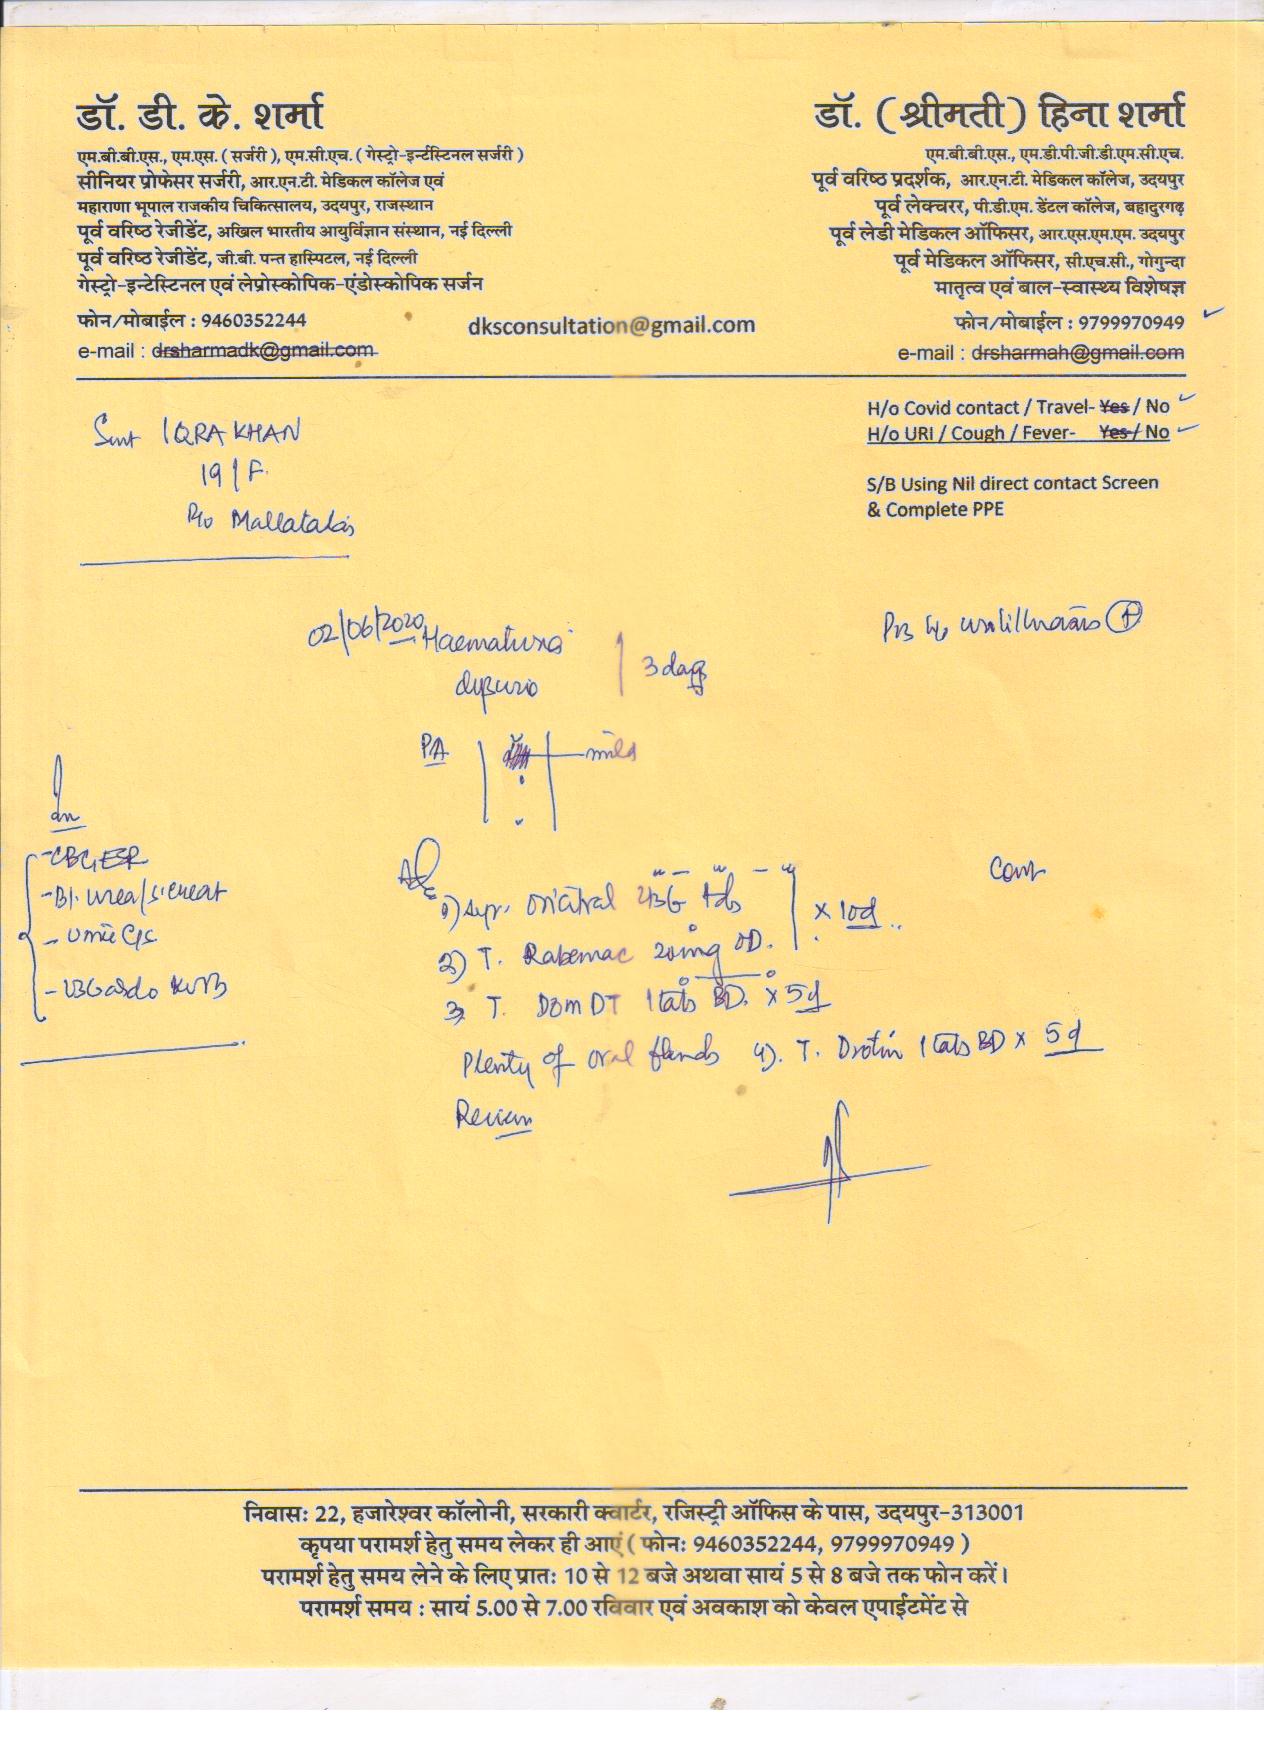 डॉ. डी. के. शर्मा
एम.बी.बी.एस., एम.एस. ( सर्जरी ), एम.सी.एच. ( गेस्ट्रो-इन्टेस्टिनल सर्जरी )
सीनियर प्रोफेसर सर्जरी, आर.एन.टी. मेडिकल कॉलेज एवं
महाराणा भूपाल राजकीय चिकित्सालय, उदयपुर, राजस्थान
पूर्व वरिष्ठ रेजीडेंट, अखिल भारतीय आयुर्विज्ञान संस्थान, नई दिल्ली
पूर्व वरिष्ठ रेजीडेंट, जी.बी. पन्त हास्पिटल, नई दिल्ली
गेस्ट्रो-इन्टेस्टिनल एवं लेप्रोस्कोपिक-एंडोस्कोपिक सर्जन
फोन/मोबाईल : 9460352244
e-mail : drsharmadk@gmail.com
dksconsultation@gmail.com
डॉ. (श्रीमती) हिना शर्मा
एम.बी.बी.एस., एम.डी.पी.जी.डी.एम.सी.एच.
पूर्व वरिष्ठ प्रदर्शक, आर.एन.टी. मेडिकल कॉलेज, उदयपुर
पूर्व लेक्चरर, पी.डी.एम. डेंटल कॉलेज, बहादुरगढ़
पूर्व लेडी मेडिकल ऑफिसर, आर.एस.एम.एम. उदयपुर
पूर्व मेडिकल ऑफिसर, सी.एच.सी., गोगुन्दा
मातृत्व एवं बाल-स्वास्थ्य विशेषज्ञ
फोन/मोबाईल : 9799970949
e-mail : drsharmah@gmail.com
H/o Covid contact / Travel- Yes / No
H/o URI / Cough / Fever- Yes / No
S/B Using Nil direct contact Screen
& Complete PPE
Smt IQRA KHAN
19/F.
R/o Mallatalai
02/06/2020 Haematuria
dysuria
3 days
PA
mild
CBC, ESR
- Bl. urea/s. creat
- Urine C/S
- USG abdo KUB
Adv
1) Syr. tds x 10d
2) T. Rabemac 20mg OD.
3) T. Dom DT 1 tab BD. x 5d
Plenty of oral fluids 4). T. Drotin 1 tab BD x 5d
Review
निवासः 22, हजारेश्वर कॉलोनी, सरकारी क्वार्टर, रजिस्ट्री ऑफिस के पास, उदयपुर-313001
कृपया परामर्श हेतु समय लेकर ही आएं ( फोनः 9460352244, 9799970949 )
परामर्श हेतु समय लेने के लिए प्रातः 10 से 12 बजे अथवा सायं 5 से 8 बजे तक फोन करें।
परामर्श समय : सायं 5.00 से 7.00 रविवार एवं अवकाश को केवल एपाईटमेंट से